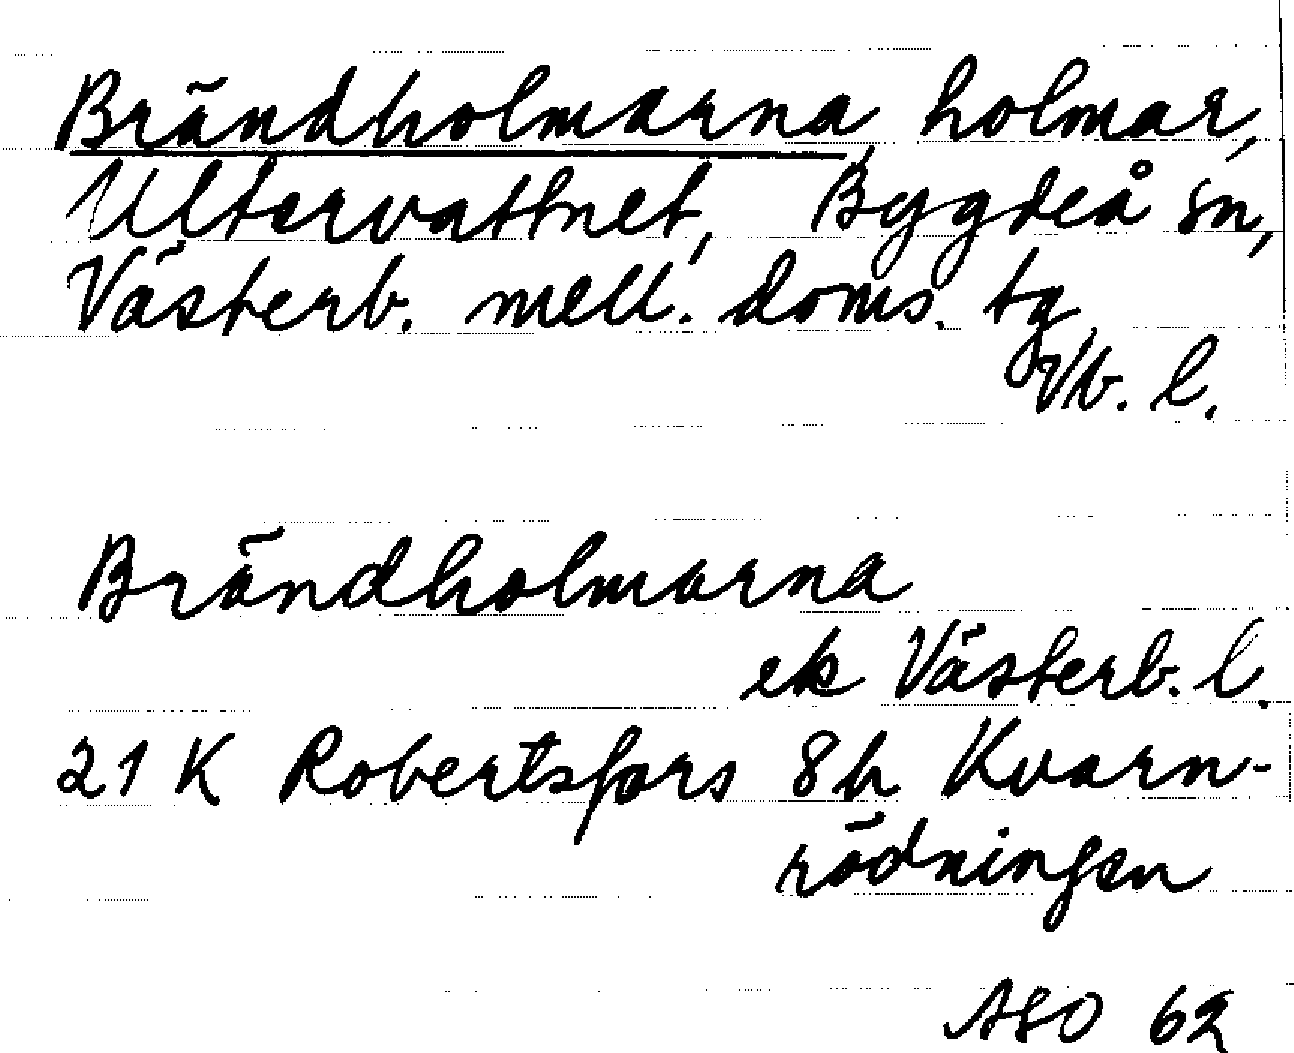 Brändholmarna holmar,
Ultervattnet, Bygdeå sn,
Västerb. mell. doms. tg
Vb. l.
Brändholmarna
ek Västerb. l.
21 K Robertsfors 8h Kvarn-
rödningen
ASO 62